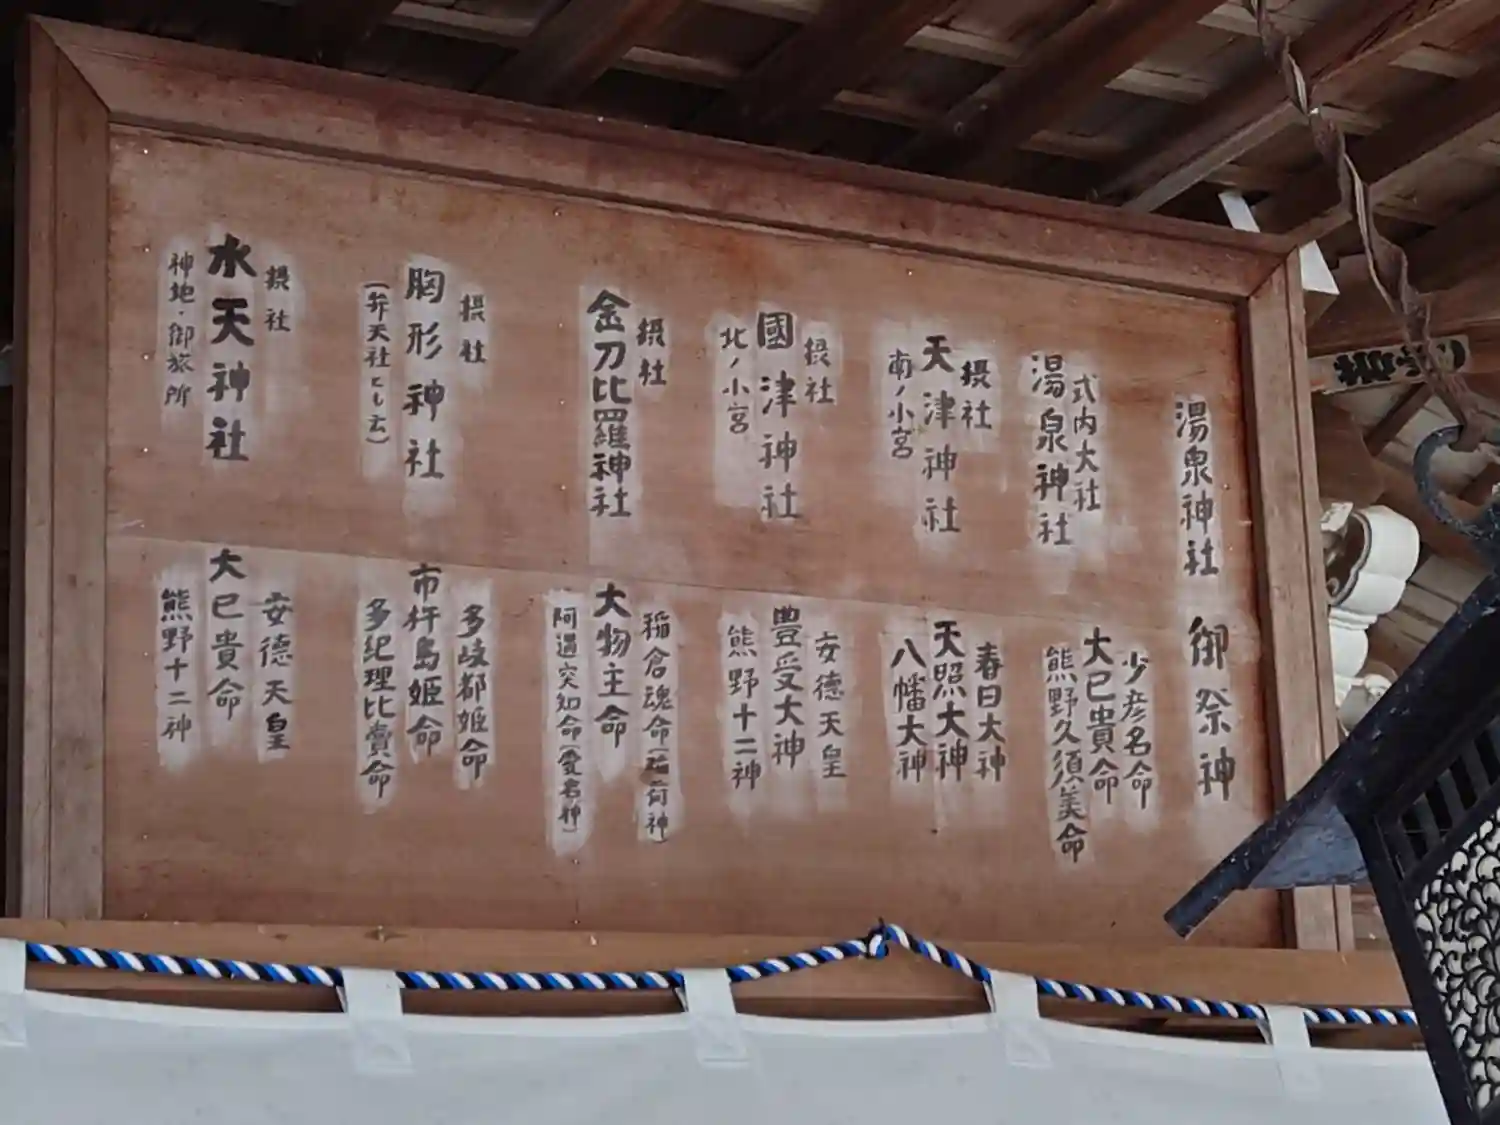 湯泉神社 御祭神
式内大社
湯泉神社
少彦名命
大已貴命
熊野久須美命
摂社
天津神社
南ノ小宮
春日大神
天照大神
八幡大神
摂社
國津神社
北ノ小宮
安德天皇
豊受大神
熊野十二神
摂社
金刀比羅神社
稲倉魂命(稲荷神)
大物主命
阿遏突知命(愛宕神)
摂社
胸形神社
(弁天社とも云)
多岐都姫命
市杵島姫命
多紀理比賣命
摂社
水天神社
神地・御旅所
安德天皇
大已貴命
熊野十二神